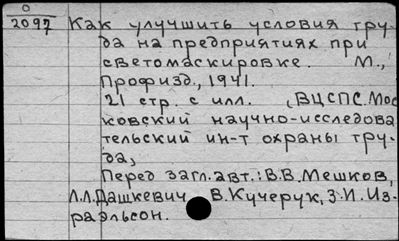 О
2097
Как улучшить условия тру-
да на предприятиях при
светомаскировке. М.,
Профизд., 1941.
21 стр. с илл. (ВЦСПС. Мос
ковский научно-исследова
тельский ин-т охраны тру-
да)
Перед загл. авт.: В.В. Мешков,
Л.Л. Дашкевич, В. Кучерук, З.И. Из-
раэльсон.